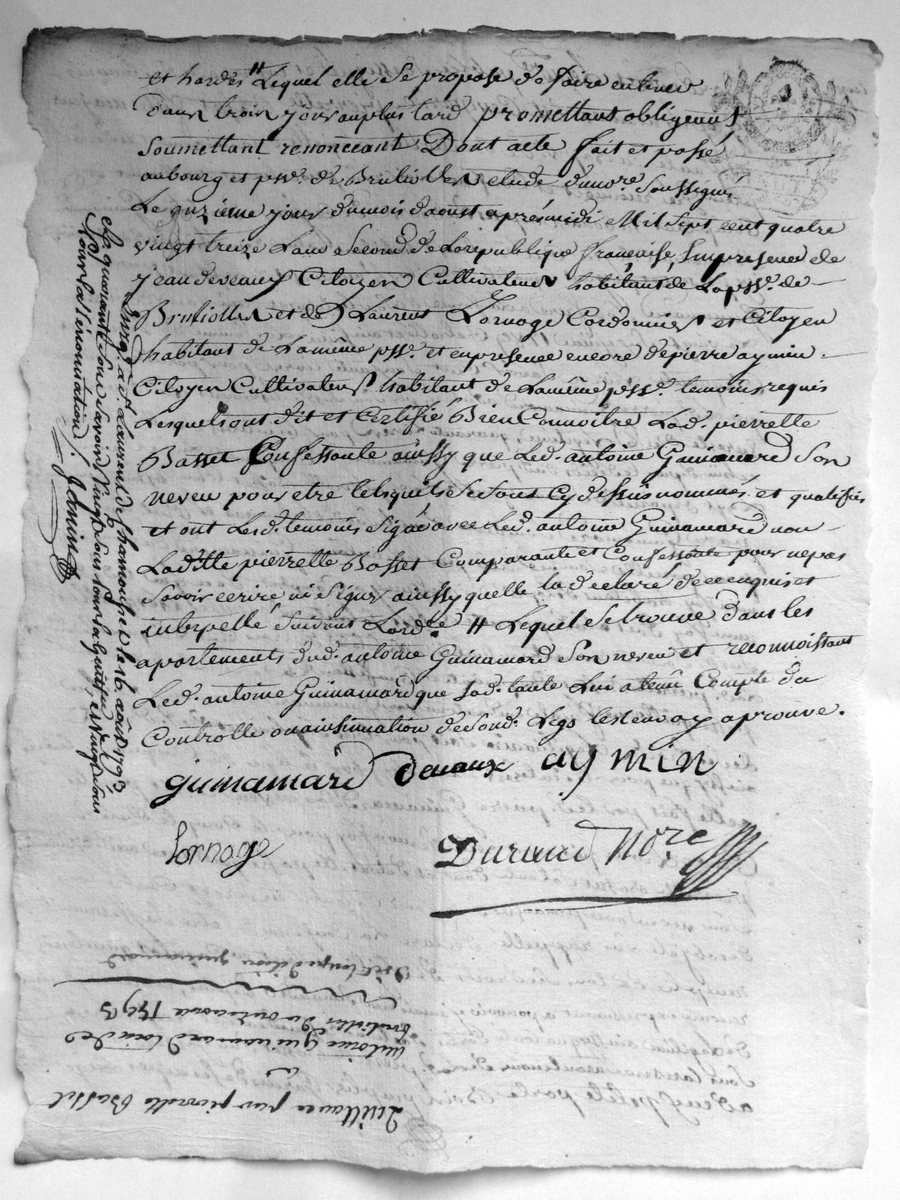 et hardes # Lequel elle se propose de faire enlever
Dans trois jours au plus tard promettant obligeant
soumettant renonceant Dont acte fait et passé
au bourg et psse. de Brulioles etude du nore. soussigné
Le quzième jour du mois d'aoust aprés midi Mil sept cent quatre
vingt treize L'an second de La republique française, En presence de
jean deveaux Citoyen Cultivateur habitant de La psse. de
Brulioles et de Laurent Lornage Cordonnier et Citoyen
habitant de La même psse. et en presence encore de pierre aymin
Citoyen Cultivateur habitant de La même psse. temoins requis
Lesquels ont dit et Certifié Bien Connoitre Lad. pierrette
Basset Confessante ainssy que Led. antoine Guinamard son
neveu pour etre tels qu'ils sont cy dessus nommés et qualifiés
et ont Lesd. temoins signé avec Led. antoine Guinamard non
Ladtte pierrette Basset Comparante et Confessante pour ne pas
savoir ecrire ni signer ainssy quelle la declaré de ce enquis et
interpellé suivant Lord.ce # Lequel se trouve dans les
apartements dud. antoine Guinamard son neveu et reconnoissant
Led. antoine Guinamard que sad. tante Lui a tenu Compte du
Controlle ou insinuation de sond. Legs
aprouvé.
guinamard devaux aymin
Lornage
Durand Nore
Enreg. à St. Laurent de Chamousset le 16. août 1793
Reçu quarante sous savoir vingt sous pour la quitt. et vingt sous
pour la
Quittance par pierrette Basset
a
antoine guinamard
brulioles du 1793
Expedition guinamard